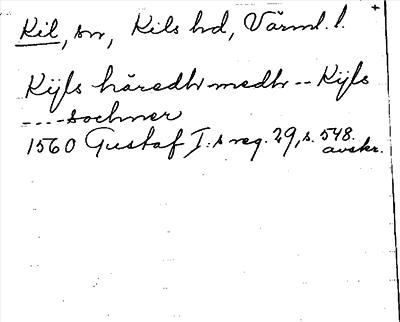 Kil, sn, Kils hd, Värml. l. +
Kijls häredh medh -- Kijls
---- sochner
1560 Gustaf I:s reg. 29, s. 548.
avskr.